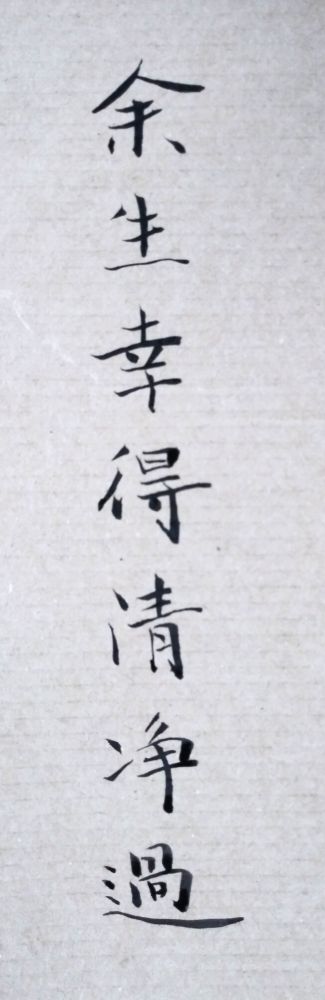 余生幸得清净過